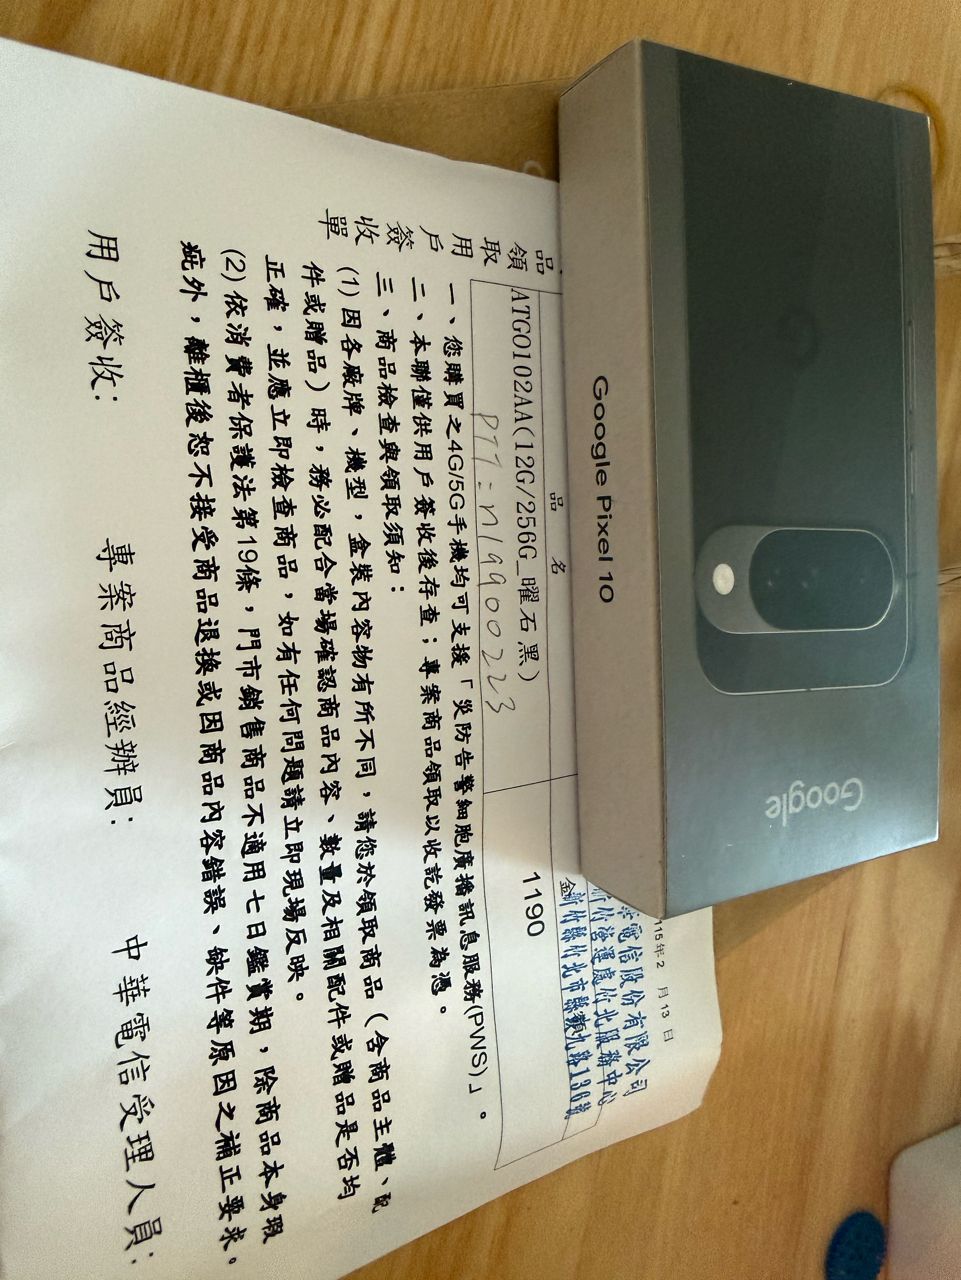 Google
Google Pixel 10
115年2 月 13 日
電信股份有限公司
新竹營運處竹北服務中心
新竹縣竹北市縣政九路136號
品 名
金
ATGO102AA(12G/256G_曜石黑)
1190
PTT = n19900223
品
領
取
用
戶
簽
收
單
一、您購買之4G/5G手機均可支援「災防告警細胞廣播訊息服務(PWS)」。
二、本聯僅供用戶簽收後存查；專案商品領取以收訖發票為憑。
三、商品檢查與領取須知：
(1) 因各廠牌、機型，盒裝內容物有所不同，請您於領取商品（含商品主體、配
件或贈品）時，務必配合當場確認商品內容、數量及相關配件或贈品是否均
正確，並應立即檢查商品，如有任何問題請立即現場反映。
(2) 依消費者保護法第19條，門市銷售商品不適用七日鑑賞期，除商品本身瑕
疵外，離櫃後恕不接受商品退換或因商品內容錯誤、缺件等原因之補正要求。
用戶簽收：
專案商品經辦員：
中華電信受理人員：